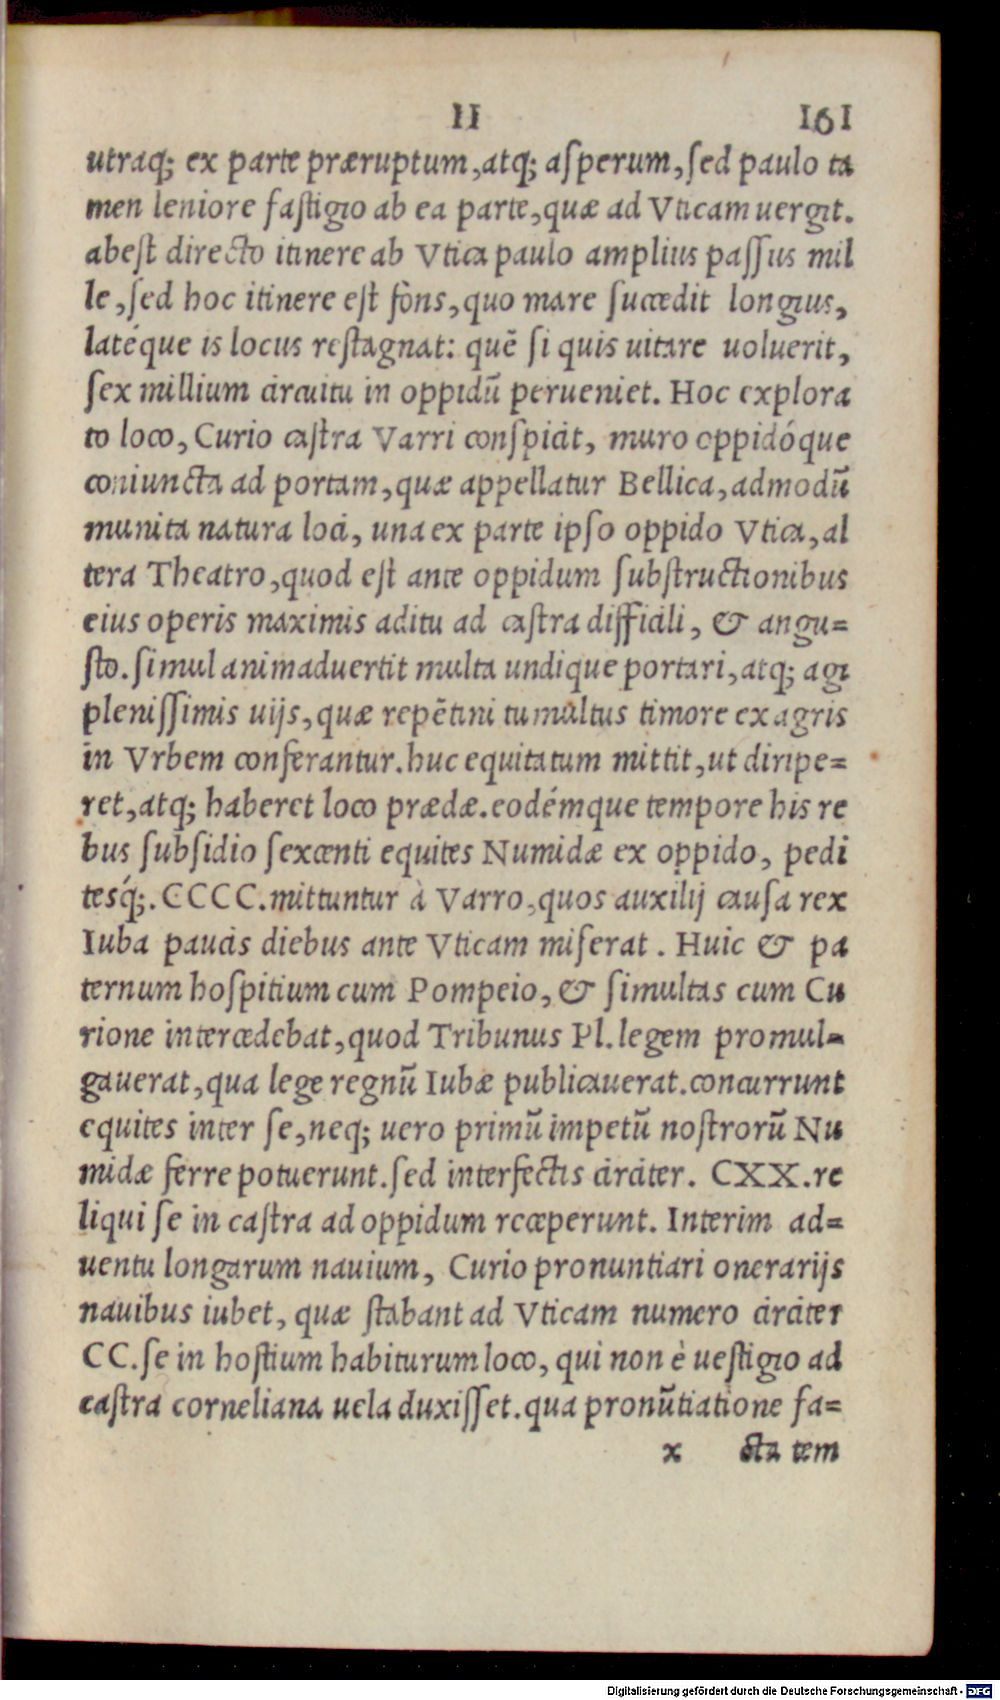 II 161
utraq; ex parte præruptum, atq; asperum, sed paulo ta
men leniore fastigio ab ea parte, quæ ad Vticam uergit.
abest directo itinere ab Vtica paulo amplius passus mil
le, sed hoc itinere est fons, quo mare succedit longius,
latéque is locus restagnat: quē si quis uitare uoluerit,
sex millium circuitu in oppidū perueniet. Hoc explora
to loco, Curio castra Varri conspicit, muro oppidóque
coniuncta ad portam, quæ appellatur Bellica, admodū
munita natura loci, una ex parte ipso oppido Vtica, al
tera Theatro, quod est ante oppidum substructionibus
eius operis maximis aditu ad castra difficili, & angu=
sto. simul animaduertit multa undique portari, atq; agi
plenissimis uijs, quæ repētini tumultus timore ex agris
in Vrbem conferantur. huc equitatum mittit, ut diripe=
ret, atq; haberet loco prædæ. eodémque tempore his re
bus subsidio sexcenti equites Numidæ ex oppido, pedi
tesq́;. CCCC. mittuntur à Varro, quos auxilij causa rex
Iuba paucis diebus ante Vticam miserat. Huic & pa
ternum hospitium cum Pompeio, & simultas cum Cu
rione intercedebat, quod Tribunus Pl. legem promul=
gauerat, qua lege regnū Iubæ publicauerat. concurrunt
equites inter se, neq; uero primū impetū nostrorū Nu
midæ ferre potuerunt. sed interfectis circiter. CXX. re
liqui se in castra ad oppidum receperunt. Interim ad=
uentu longarum nauium, Curio pronuntiari onerarijs
nauibus iubet, quæ stabant ad Vticam numero circiter
CC. se in hostium habiturum loco, qui non è uestigio ad
castra corneliana uela duxisset. qua pronūtiatione fa=
x cta tem
Digitalisierung gefördert durch die Deutsche Forschungsgemeinschaft - DFG